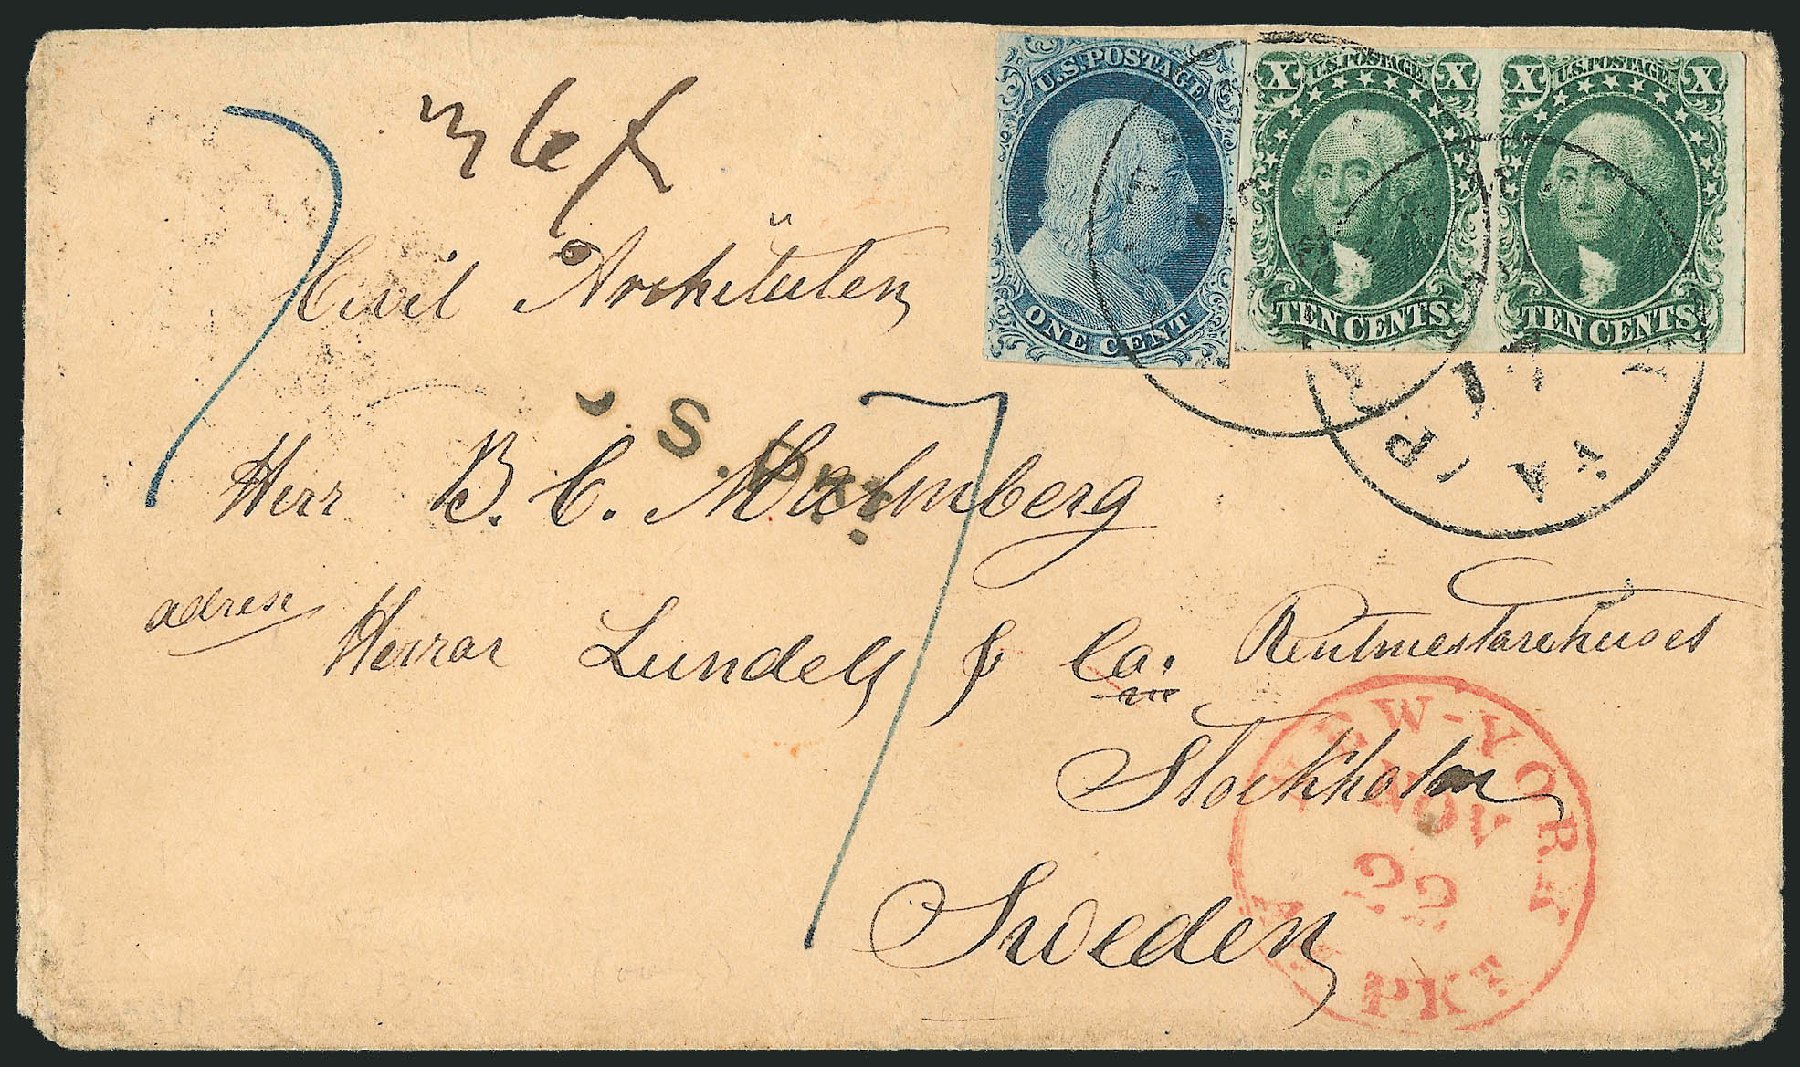 U.S. POSTAGE
ONE CENT
X U.S. POSTAGE X
TEN CENTS
X U.S. POSTAGE X
TEN CENTS
7
Civil Architecten
S. Pkt.
Herr B. C. Malmberg
7
adress
Herrar Lundell & Co. Rentmestarehuset
Stockholm
Sweden
NEW-YORK
NOV
22
AM. PKT